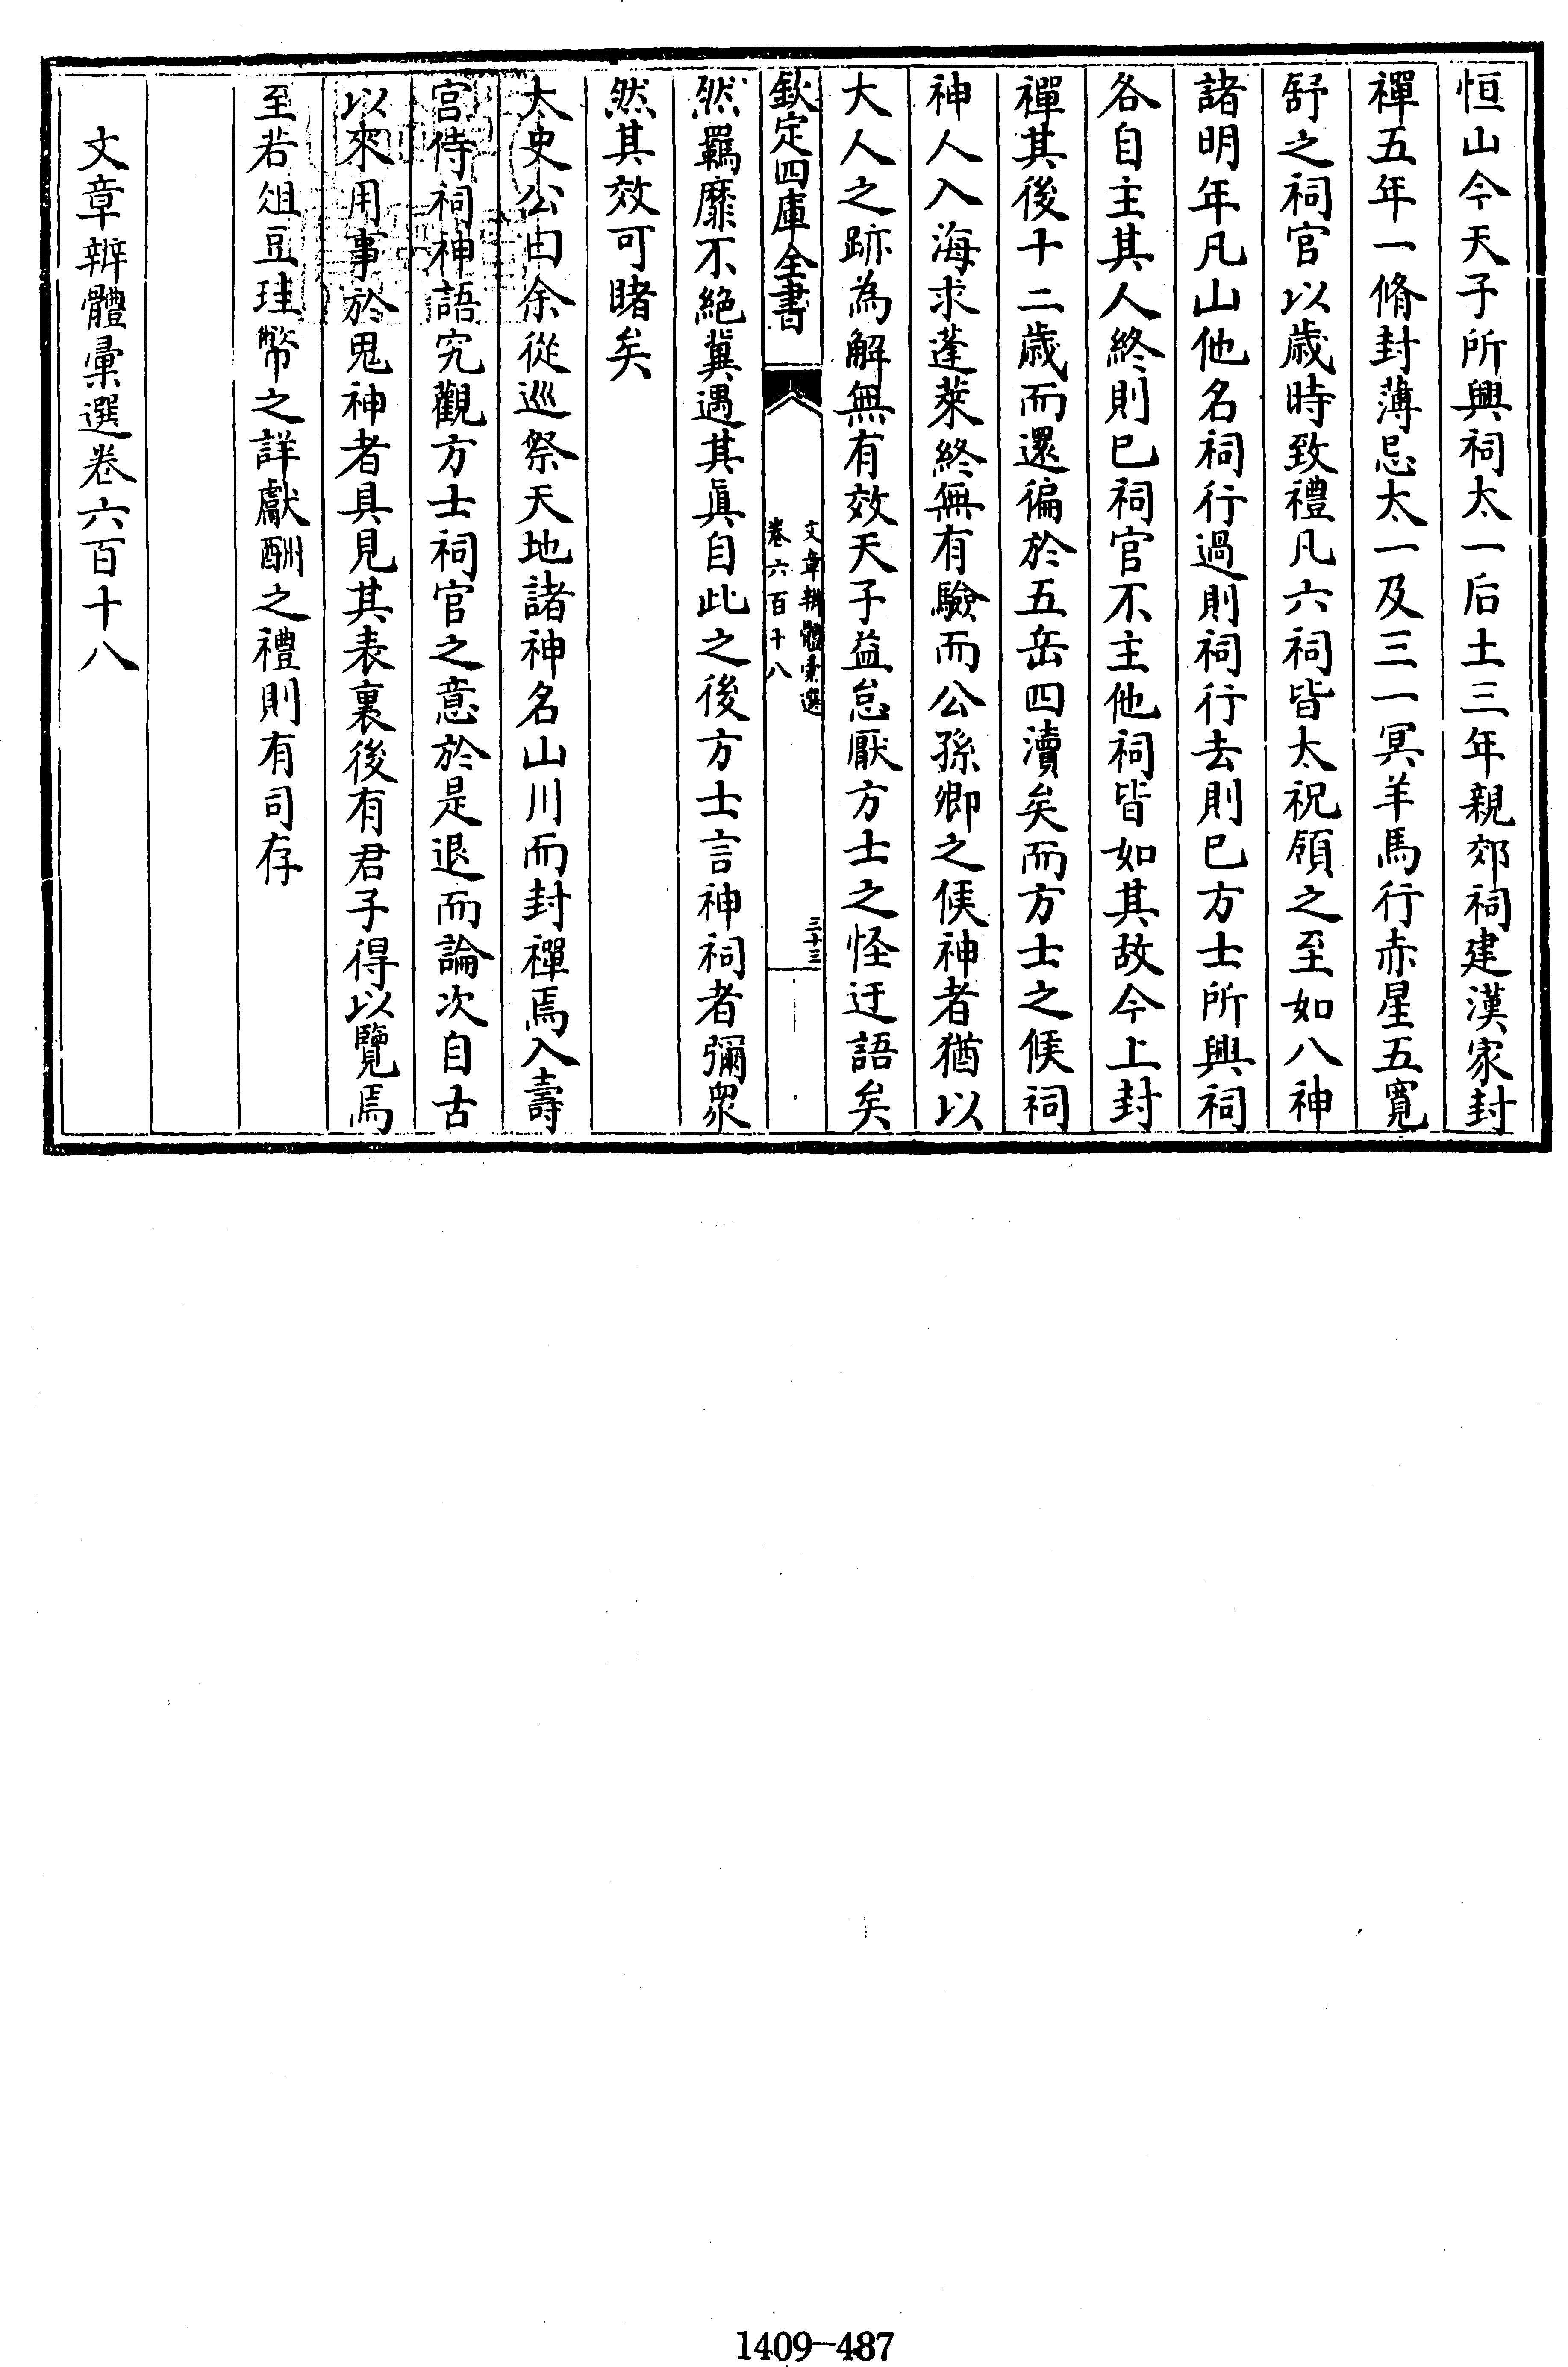 恒山今天子所興祠太一后土三年親郊祠建漢家封
禪五年一脩封薄忌太一及三一冥羊馬行赤星五寛
舒之祠官以歲時致禮凡六祠皆太祝領之至如八神
諸明年凡山他名祠行過則祠行去則已方士所興祠
各自主其人終則已祠官不主他祠皆如其故今上封
禪其後十二歲而還徧於五岳四瀆矣而方士之候祠
神人入海求蓬萊終無有驗而公孫卿之候神者猶以
大人之跡為解無有效天子益怠厭方士之怪迂語矣
欽定四庫全書
文章辨體彙選
卷六百十八
三十三
然羈靡不絕冀遇其眞自此之後方士言神祠者彌衆
然其效可睹矣
太史公曰余從巡祭天地諸神名山川而封禪焉入壽
宮侍祠神語究觀方士祠官之意於是退而論次自古
以來用事於鬼神者具見其表裏後有君子得以覽焉
至若俎豆珪幣之詳獻酬之禮則有司存
文章辨體彙選卷六百十八
1409-487